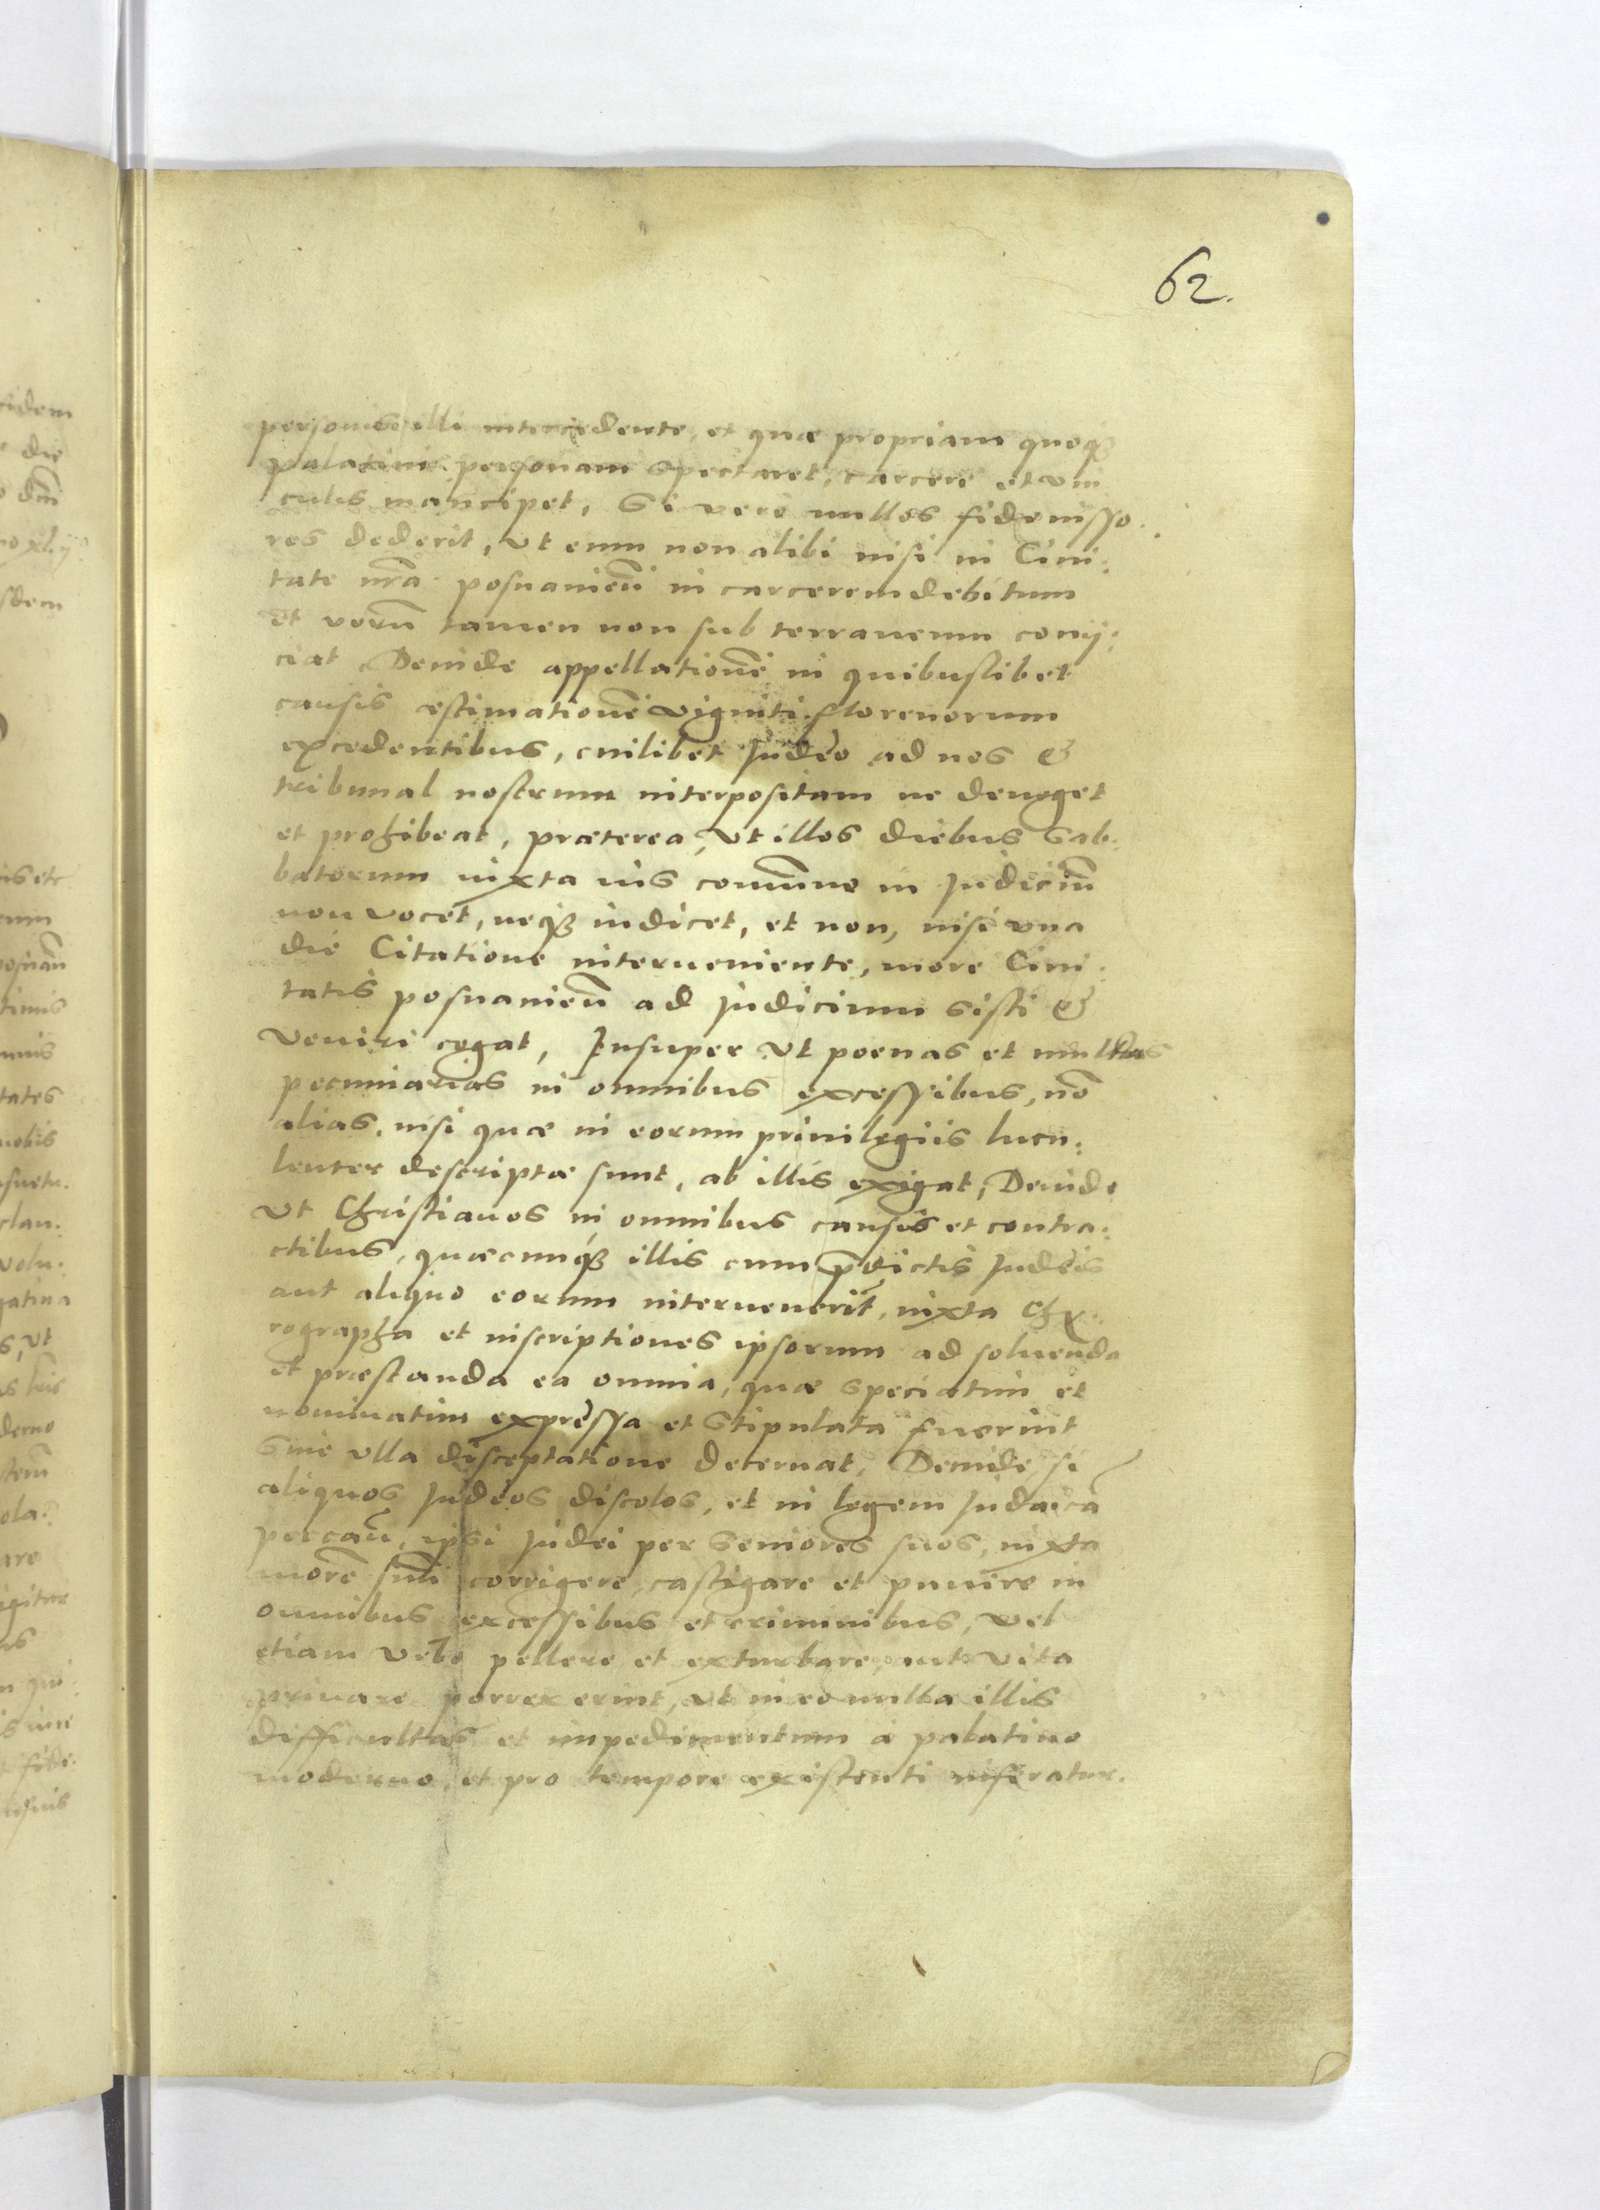 62.
personis illi intercedente, et quæ propriam quoqȝ
palatini personam spectaret, carcere et vin
culis mancipet, Si vero nullos fideiusso.
res dederit, Vt eum non alibi nisi in Ciui:
tate nrã posnanieñ in carcerem debitum
et verũ tamen non subterraneum conij:
ciat Deinde appellationẽ in quibuslibet
causis æstimationẽ viginti florenorum
excedentibus, cuilibet Judeo ad nos &
tribunal nostrum interpositam ne deneget
et prohibeat, præterea, Vt illos diebus Sab:
batorum iuxta ius comune in Judiciũ
non vocet, neqȝ iudicet, et non, nisi vna
die Citatione interueniente, more Ciui:
tatis posnanieñ ad Judicium sisti &
Veniri cogat, Insuper Vt poenas et multas
pecuniarias in omnibus excessibus, nõ
alias, nisi quæ in eorum priuilegiis lucu:
lenter descriptæ sunt, ab illis exigat, Deinde
Vt Christianos in omnibus causis et contra:
ctibus, quæcunqȝ illis cum p̃dictis Judeis
aut aliquo eorum interuenerit, iuxta Chy:
rographa et inscriptiones ipsorum ad soluenda
et præstanda ea omnia, quæ speciatim et
nominatim expressa et stipulata fuerint
Sine vlla disceptatione decernat, Deinde si
aliquos Judeos discolos, et in legem Judaicã
peccañ, ipsi Judei per Seniores suos, iuxta
morẽ suũ corrigere, castigare et punire in
omnibus excessibus et criminibus, vel
etiam Vrbe pellere et exturbare, aut vita
priuare porrexerint, Vt in eo nulla illis
difficultas et impedimentum a palatino
moderno, et pro tempore existenti inferatur.